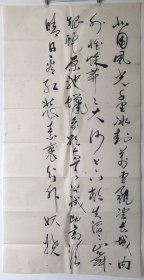 北国风光千里冰封万里雪飘望长城内
外惟余莽莽大河上下顿失滔滔山舞
银蛇原驰蜡象欲与天公试比高须
晴日看红装素裹分外妖娆